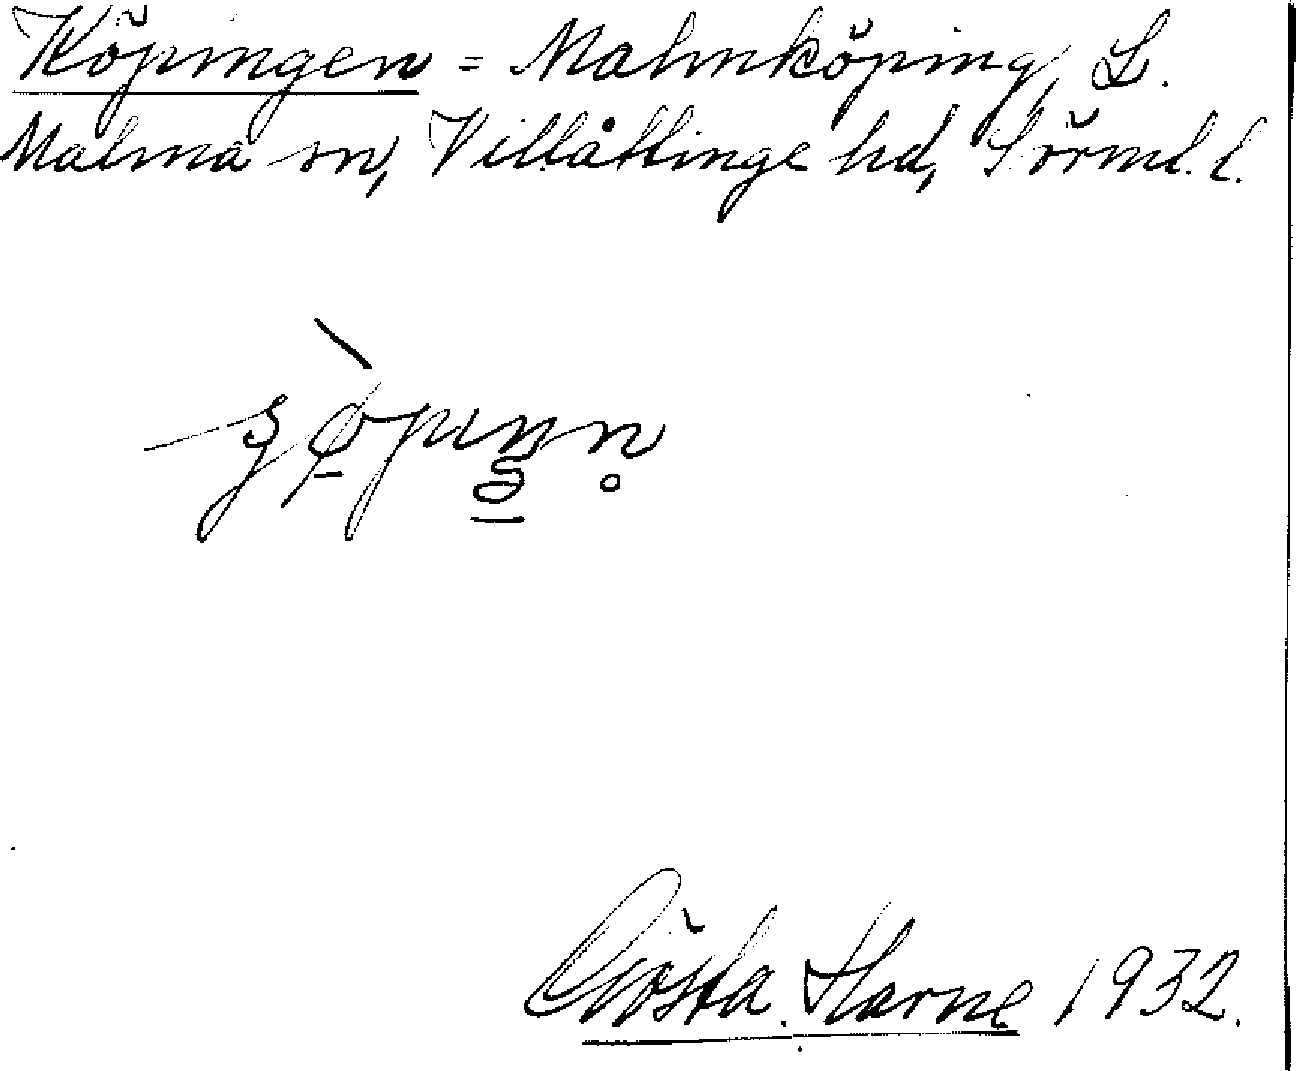 Köpingen = Malmköping, L.
Malma sn, Villåttinge hd, Sörml. l.
Gösta Harne 1932.